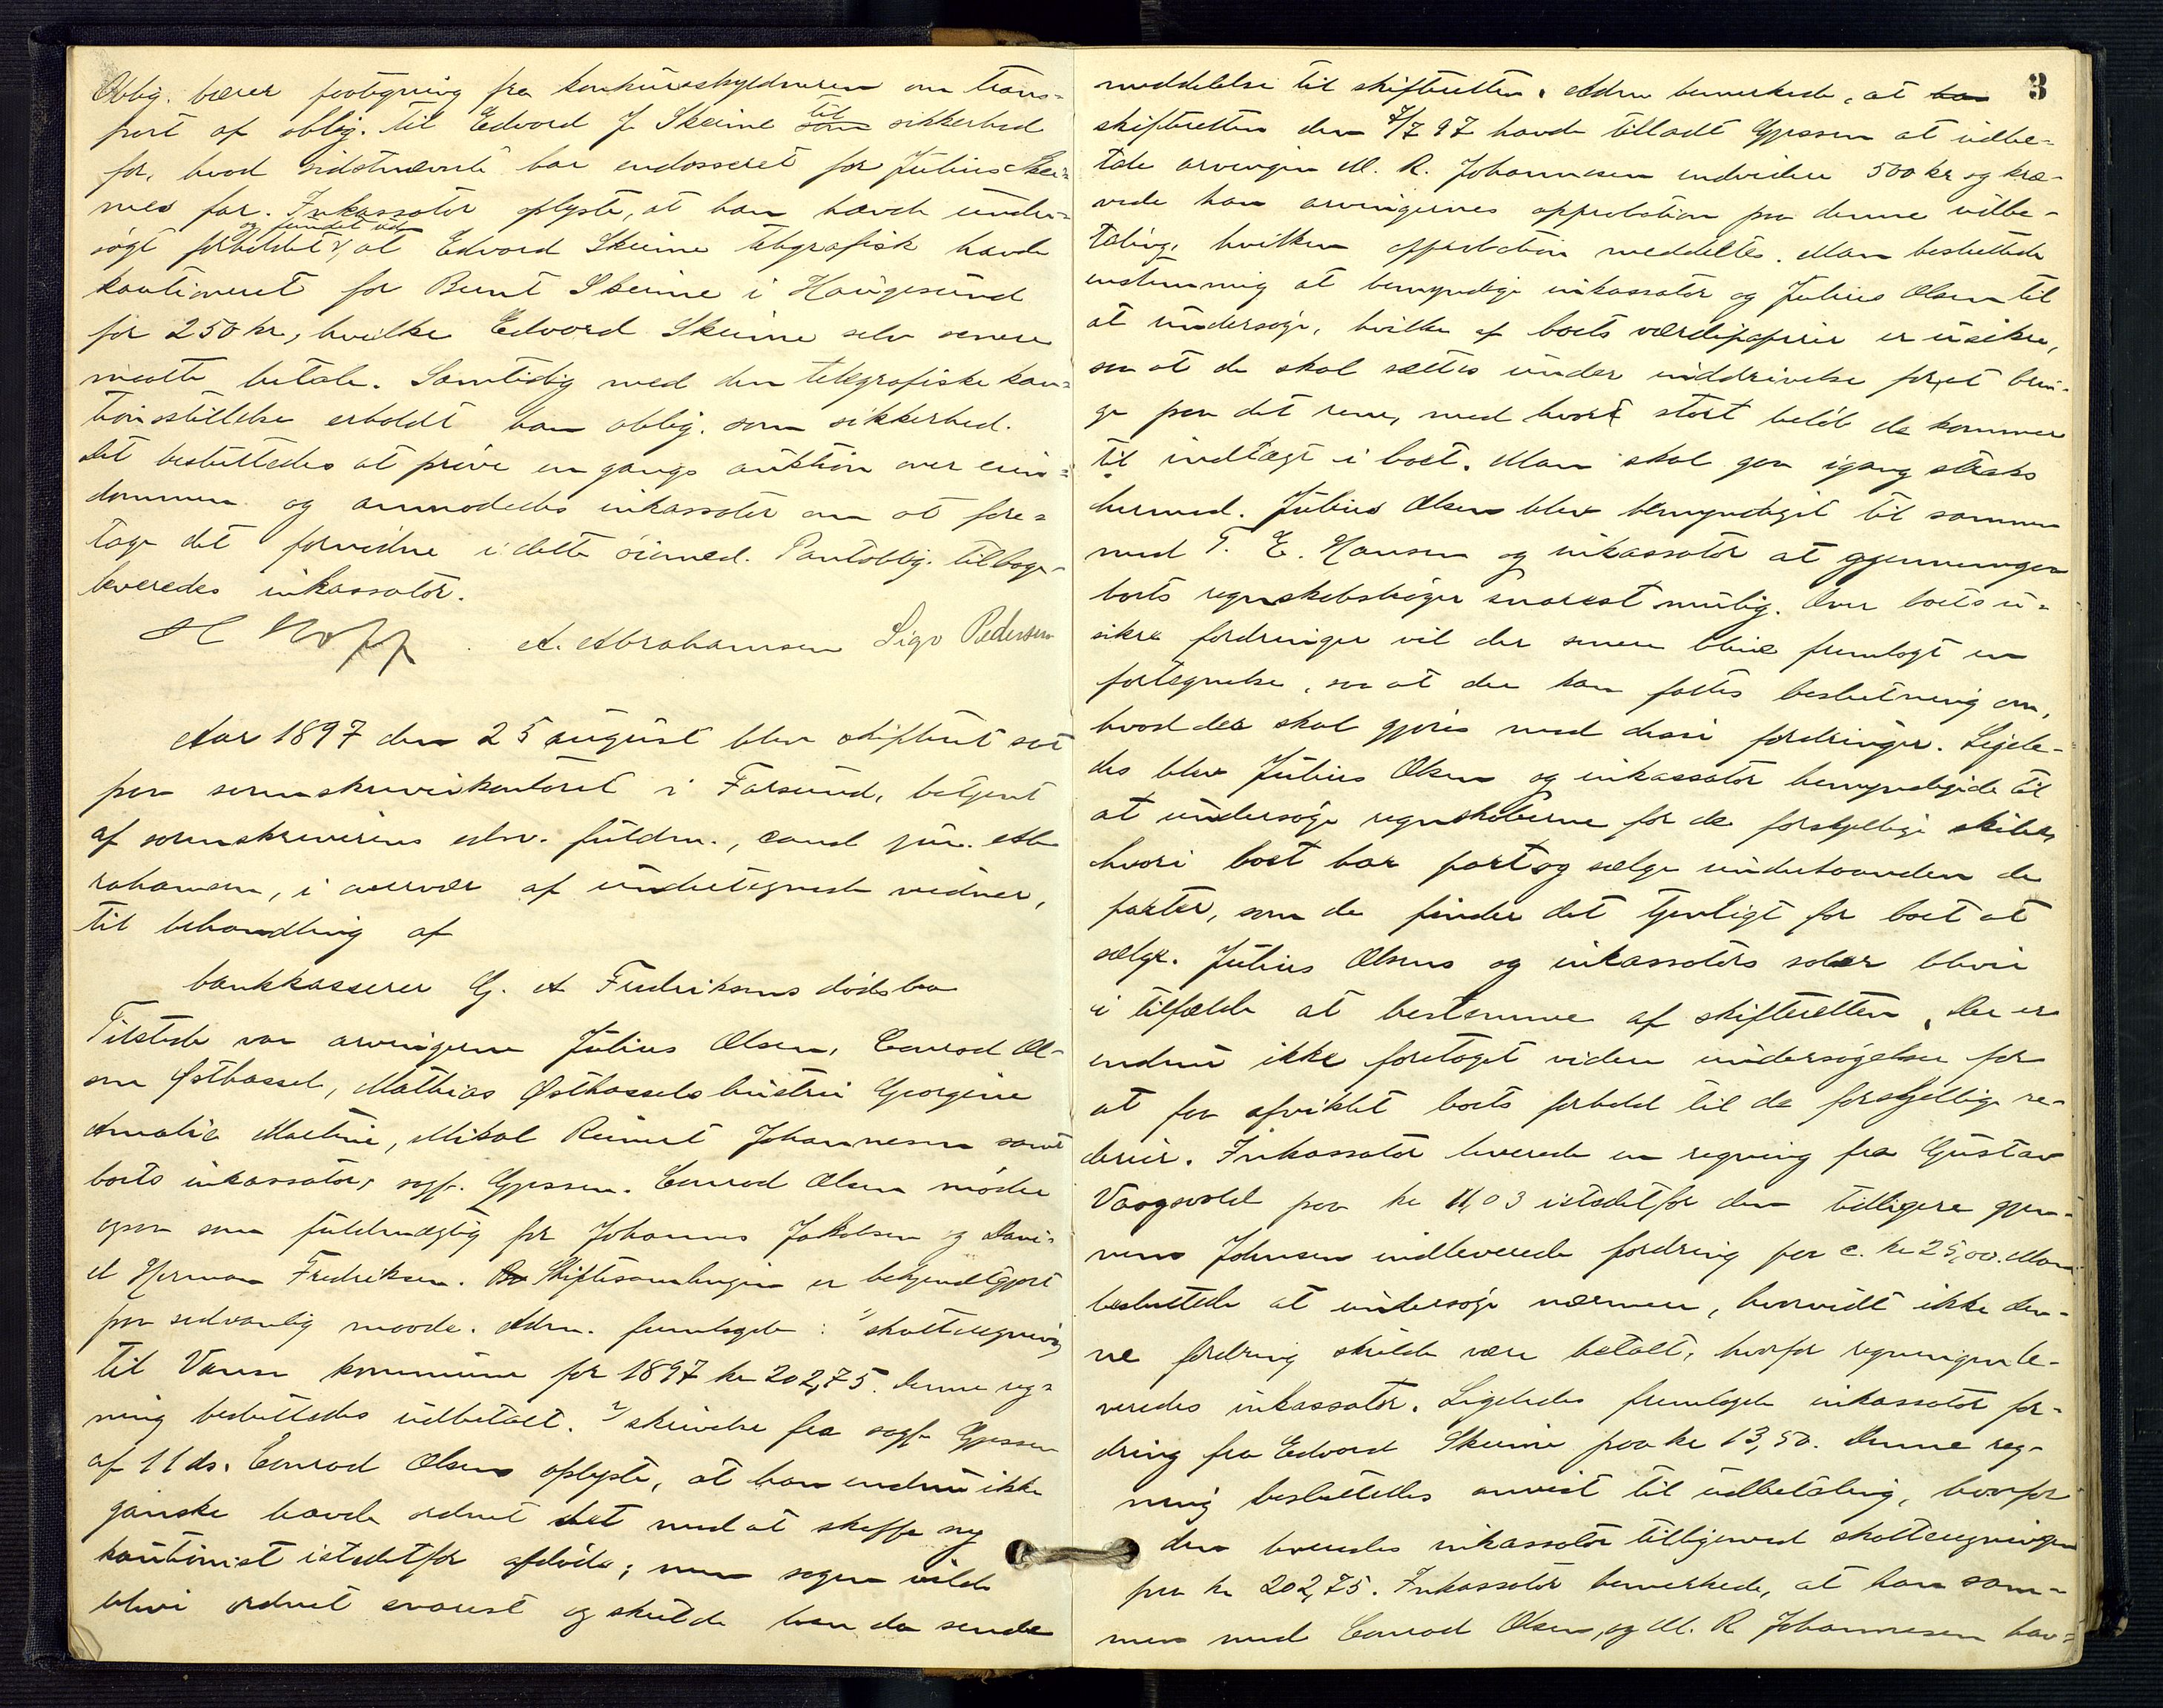 Oblig. bærer paategning fra konkursskyldneren om trans-
port af oblig. til Edvard J Skeime til sikkerhed
for, hvad sidstnævnte har endosseret for Julius Skei-
mes far. Inkassator oplyste, at han havde under-
søgt forholdet og fundet ud, at Edvard Skeime telegrafisk havde
kautioneret for Bernt Skeime i Haugesund
for 250 kr, hvilke Edvard Skeime selv senere
maatte betale. Samtidig med den telegrafiske kau-
tionsstillelse erholdt han oblig. som sikkerhed.
Det besluttedes at prøve en gangs auktion over eien-
dommen og anmodedes inkassator om at fore-
tage det fornødne i dette øiemed. Pantoblig. tilbage-
leveredes inkassator.
A. Abrahamsen Sigv Pedersen
Aar 1897 den 25 august blev skifteret sat
paa sorenskriverkontoret i Farsund, betjent
af sorenskriverens edsv. fuldm., cand jur. Ab-
rahamsen, i overvær af undertegnede vidner,
til behandling af
bankkasserer G. A Fredriksens dødsbo
Tilstede var arvingerne Julius Olsen, Conrad Ol-
sen Østhassel, Mathias Østhassels hustru Georgine
Amalie Martine, Mikal Reinert Johannesen samt
boets inkassator, sagf. Gjessen. Conrad Olsen møder
ogsaa som fuldmægtig for Johannes Jakobsen og Dani-
el Herman Fredriksen. Skiftesamlingen er bekjendtgjort
paa sedvanlig maade. Adm. fremlagde: 1/ skatteregning
til Vanse kommune for 1897 kr 202,75. Denne reg-
ning besluttedes udbetalt. 2/ skrivelse fra sagf. Gjessen
af 11 ds. Conrad Olsen oplyste, at han endnu ikke
ganske havde ordnet det med at skaffe ny
kautionist istedetfor afdøde; men sagen vilde
blive ordnet snarest og skulde han da sende
3
meddelelse til skifteretten. Adm bemerkede, at
skifteretten den 7/7 97 havde tilladt Gjessen at udbe-
tale arvingen M. R. Johannesen endvidere 500 kr og kræ-
vede han arvingernes approbation paa denne udbe-
taling, hvilken approbation meddeltes. Man besluttede
enstemmig at bemyndige inkassator og Julius Olsen til
at undersøge, hvilke af boets værdipapirer er usikre,
saa at de skal sættes under inddrivelse for at brin-
ge paa det rene, med hvor stort beløb de kommer
til indtægt i boet. Man skal gaa igang straks
hermed. Julius Olsen blev bemyndiget til sammen
med T. E. Hansen og inkassator at gjennemgaa
boets regnskabsbøger snarest mulig. Over boets u-
sikre fordringer vil der senere blive fremlagt en
fortegnelse, saa at der kan fattes beslutning om,
hvad der skal gjøres med disse fordringer. Ligele-
des blev Julius Olsen og inkassator bemyndigede til
at undersøge regnskaberne for de forskjellige skibe,
hvori boet har part og sælge underhaanden de
parter, som de finder det tjenligt for boet at
sælge. Julius Olsens og inkassators salær blive
i tilfælde at bestemme af skifteretten. Der er
endnu ikke foretaget videre undersøgelser for
at faa afviklet boets forhold til de forskjellige re-
derier. Inkassator leverede en regning fra Gustav
Vaagsvold paa kr 11,03 istedetfor den tidligere gjen-
nem Johnsen indleverede fordring paa c. kr 25,00. Man
besluttede at undersøge nærmere, hvorvidt ikke den-
ne fordring skulde være betalt, hvorfor regningen le-
veredes inkassator. Ligeledes fremlagde inkassator for-
dring fra Edvard Skeime paa kr 13,50. Denne reg-
ning besluttedes anvist til udbetaling, hvorfor
den leveredes inkassator tilligemed skatteregningen
paa kr 202,75. Inkassator bemerkede, at han sam-
men med Conrad Olsen, og M. R Johannesen hav-